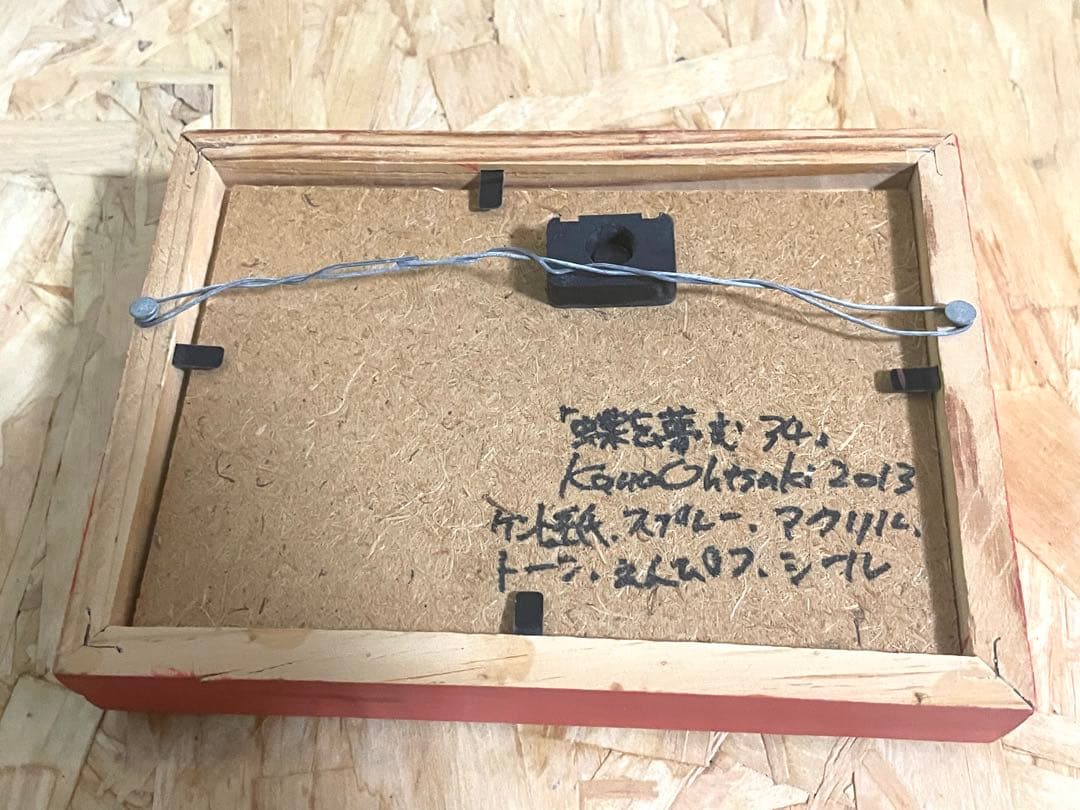 「蝶を夢む 34」
Kana Ohtsuki 2013
ケント紙、スプレー、マクリル、
トーン、えんぴつ、シール